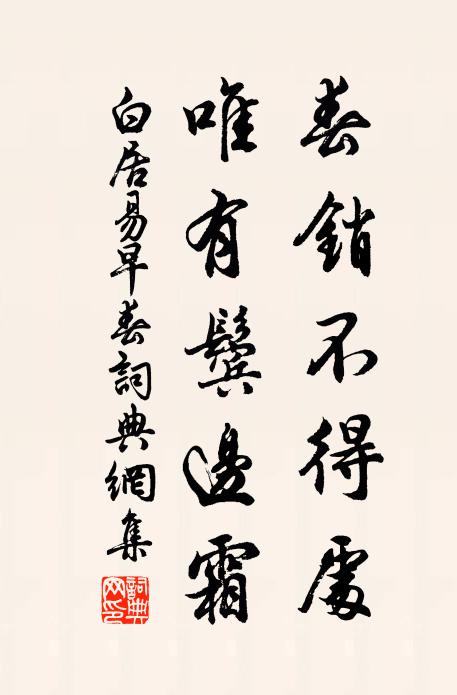 春銷不得處
唯有鬢邊霜
白居易早春詞典網集
詞典网印